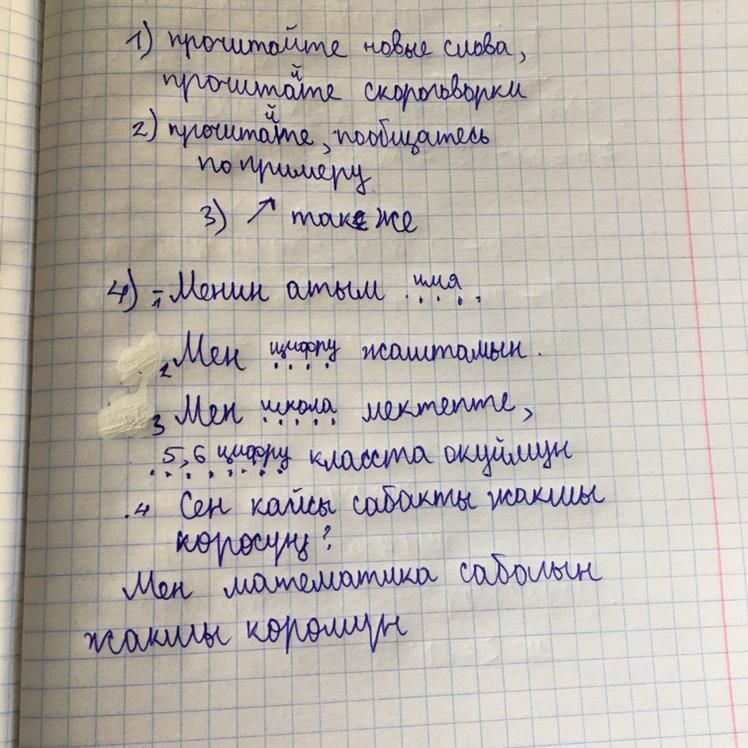 1) прочитайте новые слова,
прочитайте скороговорки
2) прочитайте, пообщатесь
по примеру
3) ↗ так же
4) - Менин атым имя
1
2 Мен цифру жаштамын.
3 Мен школа мектепте,
5, 6 цифру класста окуймун
.4 Сен кайсы сабакты жакшы
коросуң?
Мен математика сабагын
жакшы коромун